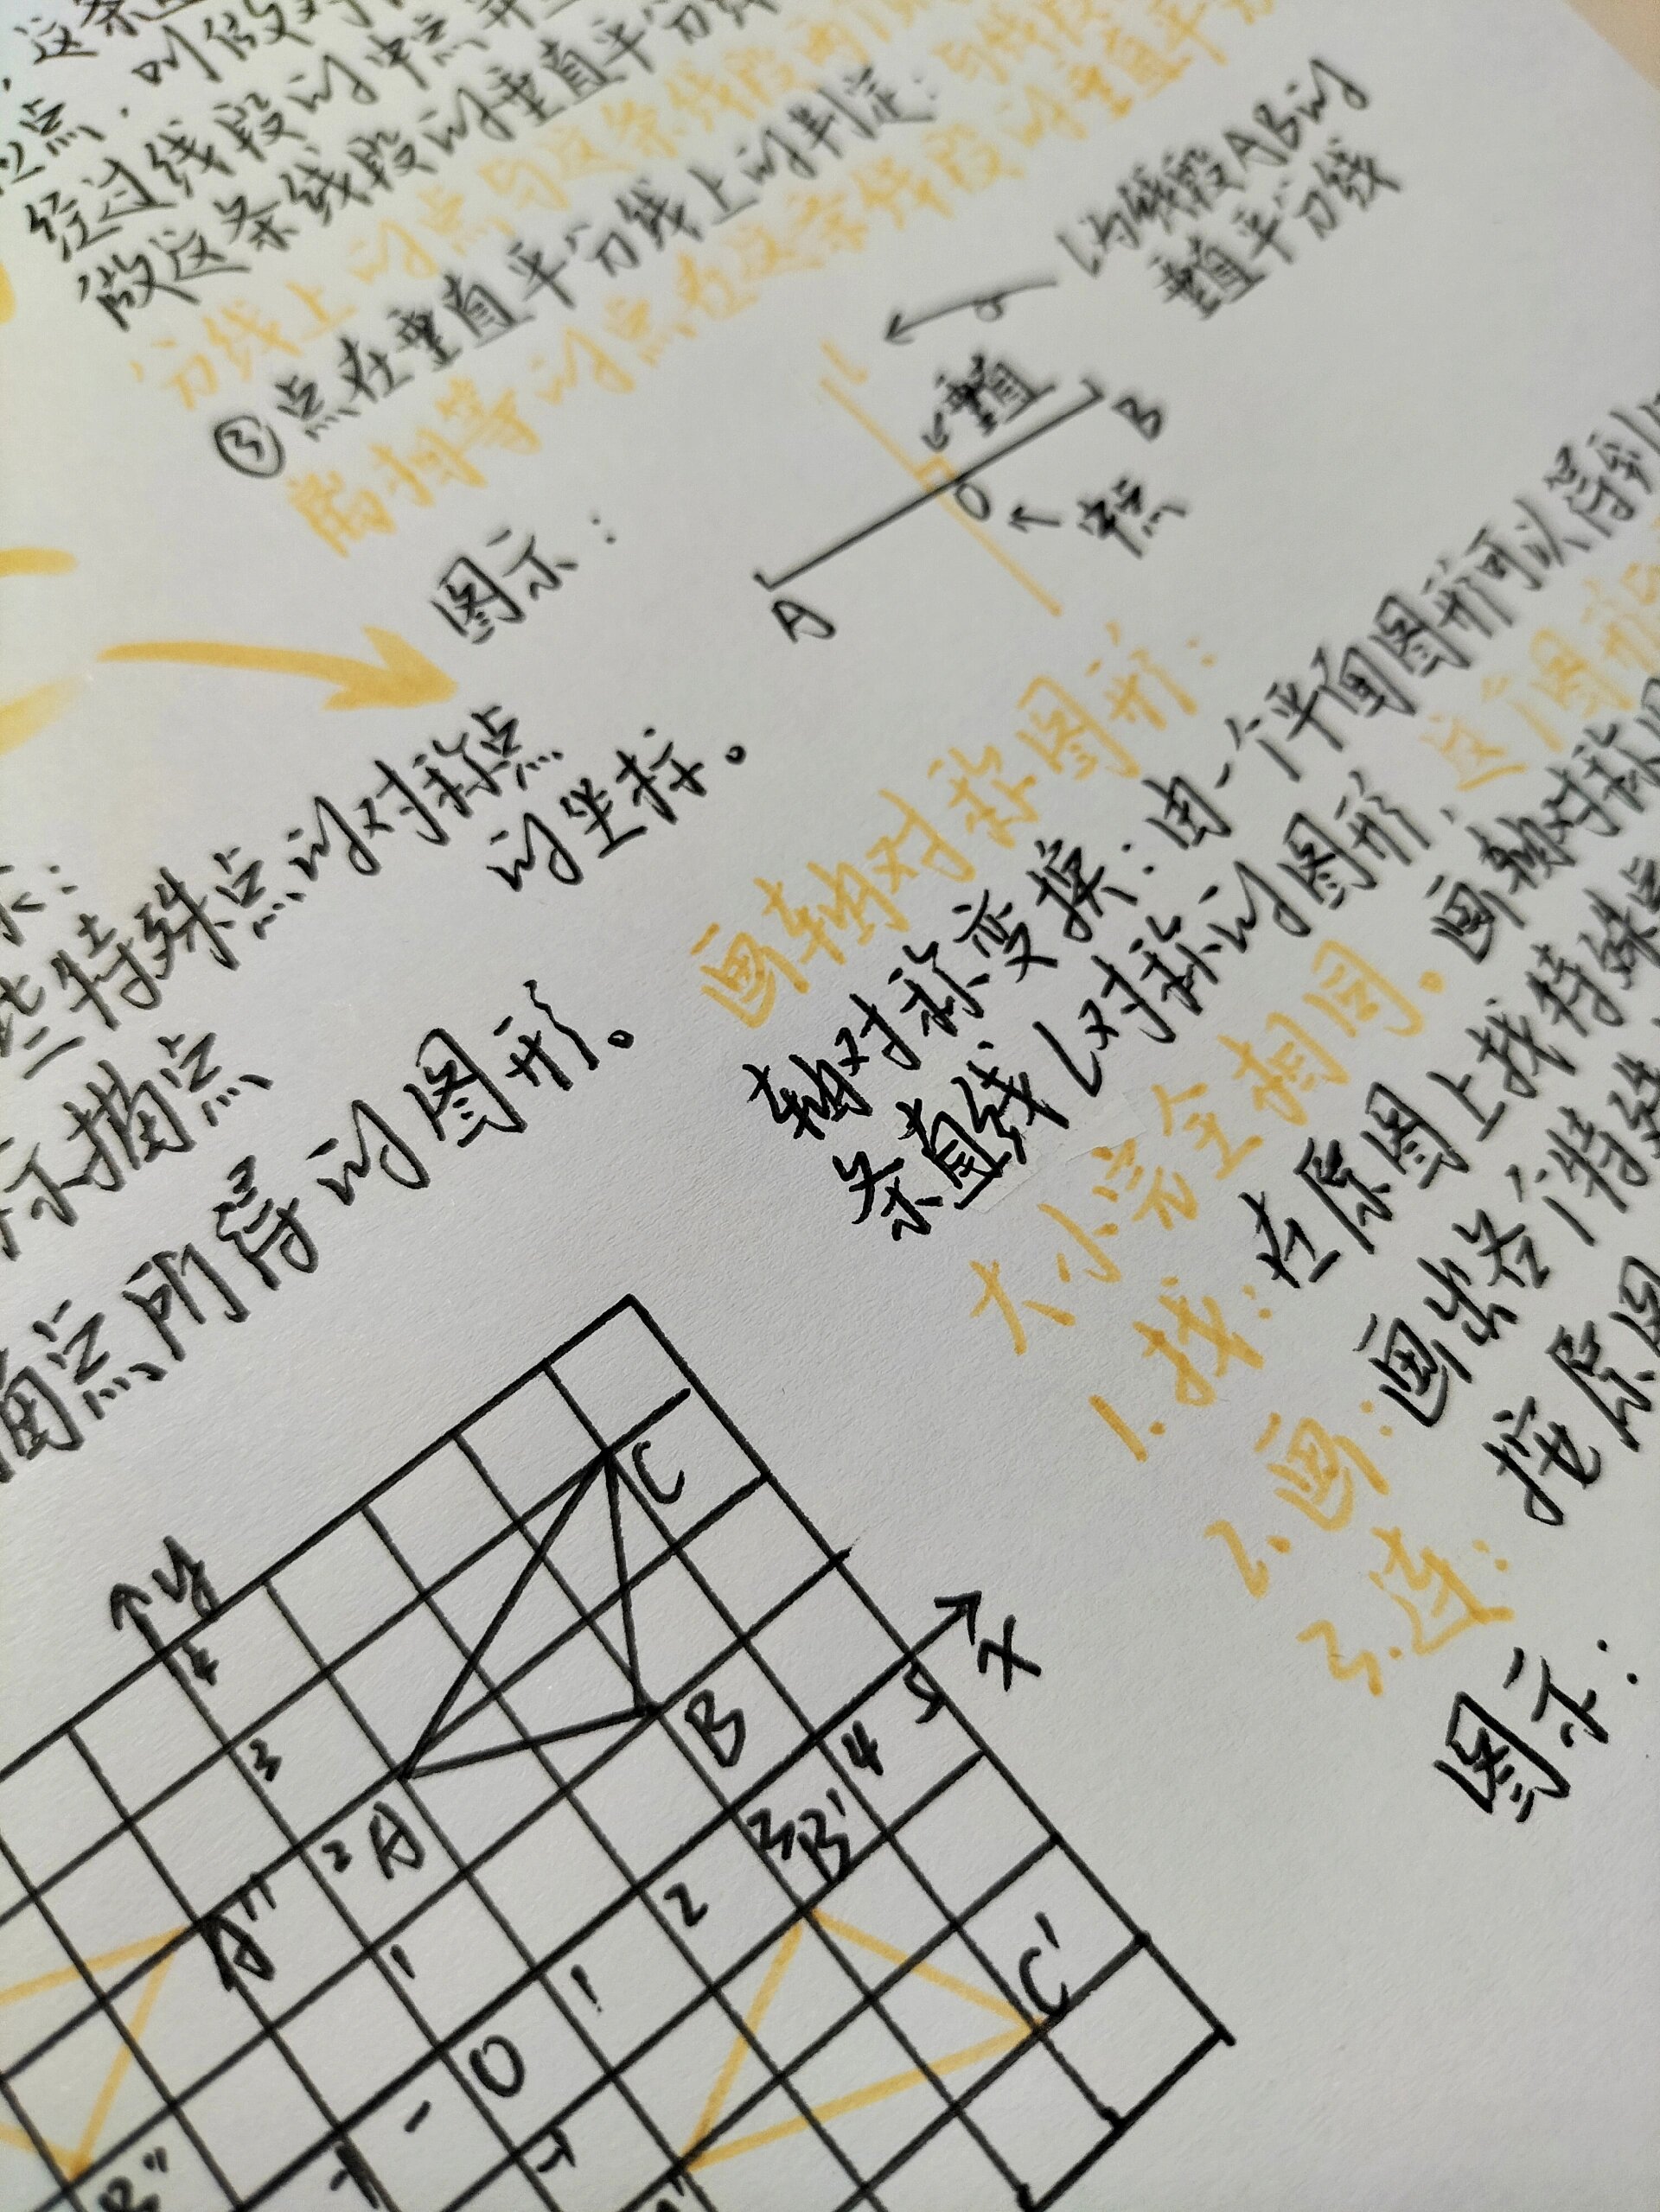 这条
点，叫做对
经过线段的中点并且
做这条线段的垂直平分线
分线上的点与这条线段两
③点在垂直平分线上的判定：与线段
离相等的点在这条线段的垂直平
图示：
l为线段AB的
垂直平分线
l
垂直
B
O
中点
A
些特殊点的对称点
的坐标。
示描点
描点所得的图形。
画轴对称图形：
轴对称变换：由一个平面图形可以得到
条直线l对称的图形，这个图形
大小完全相同。画轴对称
1.找：在原图上找特殊点
2.画：画出各个特殊
3.连：按原图
图示：
y
4
3
2
1
O
1
2
3
4
5
x
A
B
C
A''
B''
B'
C'
A'
-1
-1